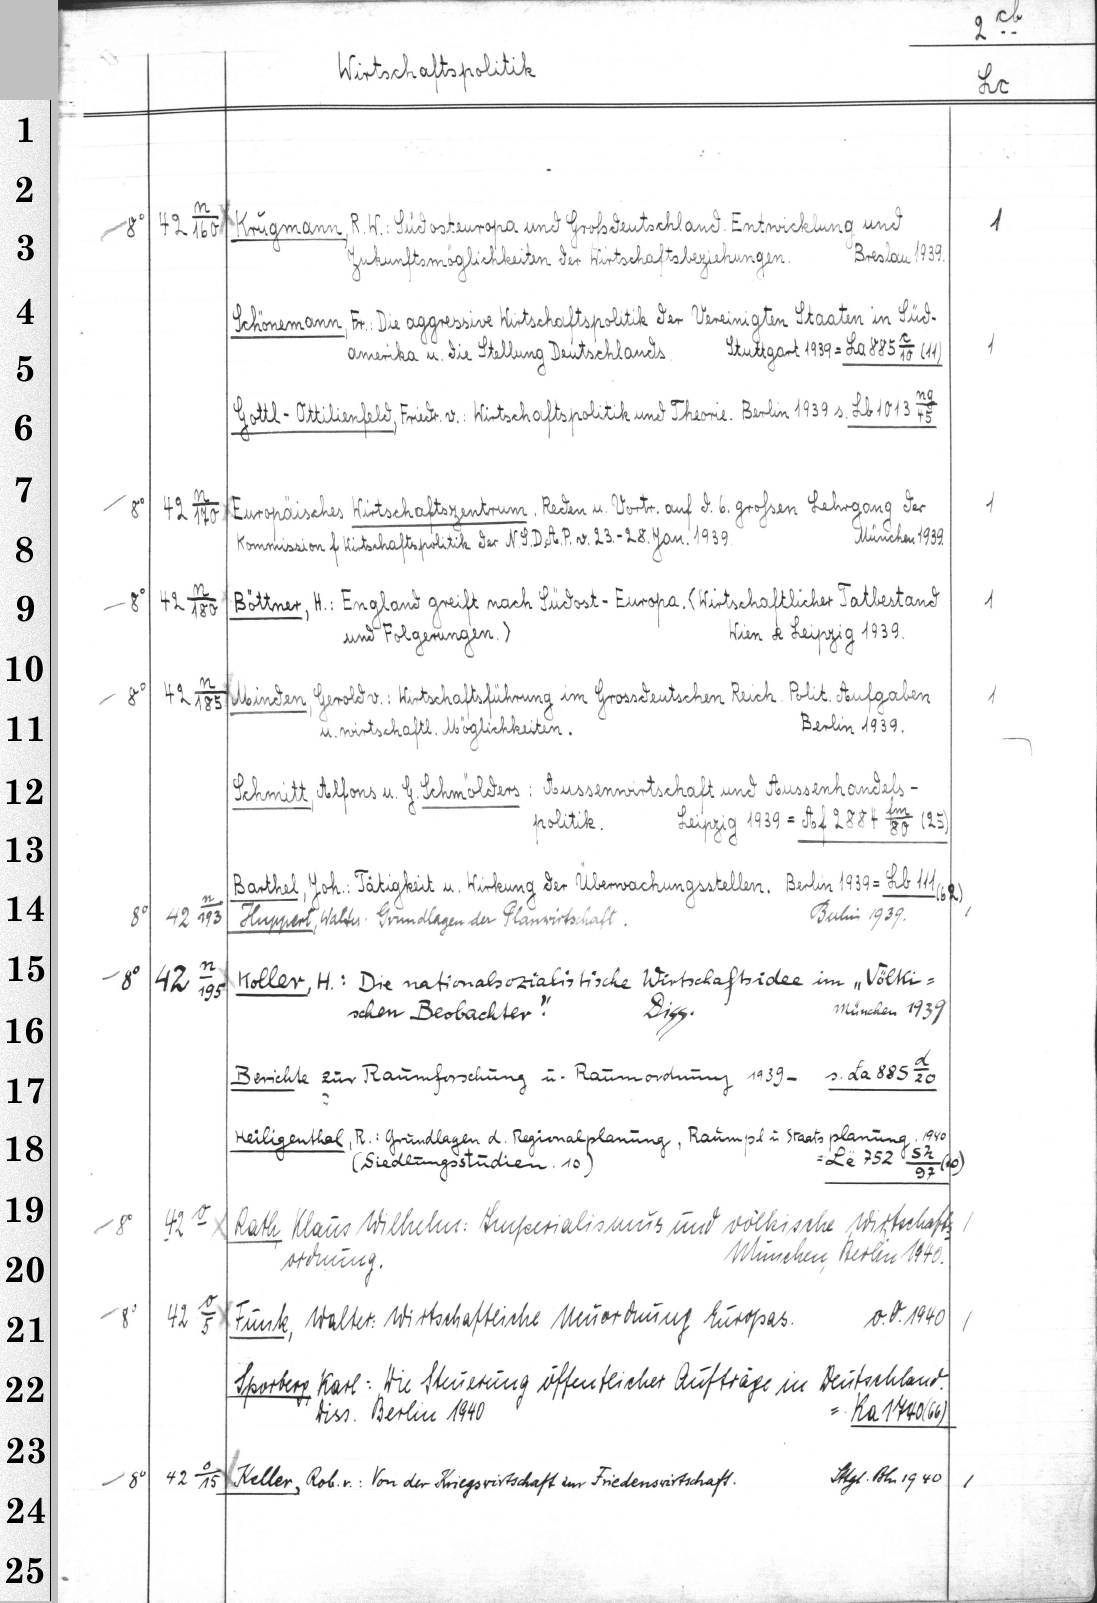 2 cb
Wirtschaftspolitik
Lc
1
2
8° 42 n/160 Krugmann, R. W.: Südosteuropa und Großdeutschland. Entwicklung und 1
3
Zukunftsmöglichkeiten der Wirtschaftsbeziehungen. Breslau 1939.
4
Schönemann, Fr.: Die aggressive Wirtschaftspolitik der Vereinigten Staaten in Süd-
5
amerika u. die Stellung Deutschlands. Stuttgart 1939 = La 885 c/10 (11) 1
6
Gottl-Ottilienfeld, Friedr. v.: Wirtschaftspolitik und Theorie. Berlin 1939 s. Lb 1013 ng/45
7
8° 42 n/170 Europäisches Wirtschaftszentrum. Reden u. Vortr. auf d. 6. großen Lehrgang der 1
8
Kommission f Wirtschaftspolitik der N.S.D.A.P. v. 23.-28. Jan. 1939. München 1939.
9
8° 42 n/180 Böttner, H.: England greift nach Südost-Europa. (Wirtschaftlicher Tatbestand 1
und Folgerungen.) Wien & Leipzig 1939.
10
8° 42 n/185 Minden, Gerold v.: Wirtschaftsführung im Grossdeutschen Reich. Polit. Aufgaben 1
11
u. wirtschaftl. Möglichkeiten. Berlin 1939.
12
Schmitt, Alfons u. G. Schmölders: Aussenwirtschaft und Aussenhandels-
politik. Leipzig 1939 = Af 2884 fm/80 (25)
13
Barthel, Joh.: Tätigkeit u. Wirkung der Überwachungsstellen. Berlin 1939 = Lb 111 (62)
14
8° 42 n/193 Huppert, Walter. Grundlagen der Planwirtschaft. Berlin 1939. /
15
8° 42 n/195 Koller, H.: Die nationalsozialistische Wirtschaftsidee im „Völki=
16
schen Beobachter". Diss. München 1939
17
Berichte zur Raumforschung u. Raumordnung 1939- s. La 885 d/20
18
Heiligenthal, R.: Grundlagen d. Regionalplanung, Raumpl u Staatsplanung. 1940
(Siedlungsstudien. 10) = Le 752 sh/97 (10)
19
8° 42 o Rath, Klaus Wilhelm: Imperialismus und völkische Wirtschafts /
20
ordnung. München, Berlin 1940.
21
8° 42 o/5 Funk, Walter: Wirtschaftliche Neuordnung Europas. o.O. 1940 /
22
Sporberg, Karl: Die Steuerung öffentlicher Aufträge in Deutschland.
Diss. Berlin 1940 = Ka 1740 (66)
23
8° 42 o/15 Keller, Rob. v.: Von der Kriegswirtschaft zur Friedenswirtschaft. Sttgt. Bln 1940 /
24
25